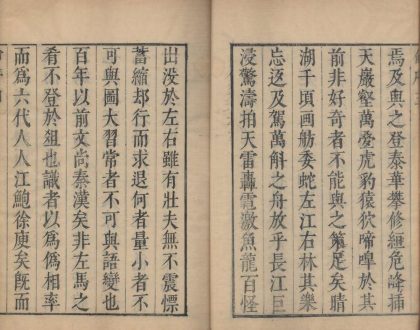 焉及與之登泰華攀修緪危降插
天巖壑萬疊虎豹猿狖啼嘷於其
前非好奇者不能與之策足矣睛
湖千頃画舫委蛇左江右林其樂
忘返及駕萬斛之舟放乎長江巨
浸驚濤拍天雷轟霓激魚龍百怪
出没於左右雖有壮夫無不震慓
蓄縮却行而求退何者量小者不
可與圖大習常者不可與語變也
百年以前文尚秦漢矣非左馬之
肴不登於俎也識者以為僞相率
而為六代人人江鮑徐庾矣旣而